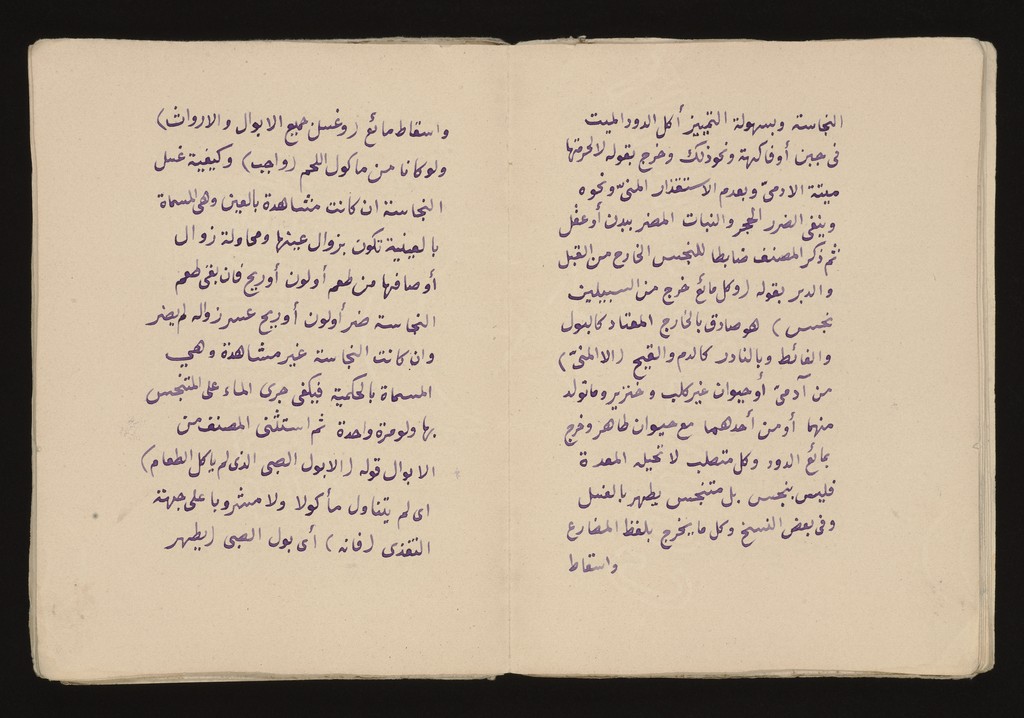 النجاسة وبسهولة التمييز أكل الدود الميت
فى جبن أوفاكهة ونحوذلك وخرج بقوله لالحرمتها
ميتة الادمىّ وبعدم الاستقذار المنىّ ونحوه
وينفى الضرر الحجر والنبات المضر ببدن أوعقل
ثم ذكر المصنف ضابطا للنجس الخارج من القبل
والدبر بقوله (وكل مائع خرج من السبيلين
نجس) هو صادق بالخارج المعتاد كالبول
والغائط وبالنادر كالدم والقيح (الاالمنىّ)
من آدمىّ أوحيوان غيركلب وخنزير وماتولد
منهما أومن أحدهما مع حيوان طاهر وخرج
بمائع الدود وكل متصلب لا تحيله المعدة
فليس بنجس بل متنجس يطهر بالغسل
وفى بعض النسخ وكل مايخرج بلفظ المضارع
واسقاط
واسقاط مائع (وغسل جميع الابوال والارواث)
ولوكانا من ماكول اللحم (واجب) وكيفية غسل
النجاسة ان كانت مشاهدة بالعين وهى المسماة
بالعينية تكون بزوال عينها ومحاولة زوال
أوصافها من طعم أولون أوريح فان بقى طعم
النجاسة ضر أولون أوريح عسر زواله لم يضر
وان كانت النجاسة غير مشاهدة وهي
المسماة بالحكمية فيكفى جرى الماء على المتنجس
بها ولومرة واحدة ثم استثنى المصنف من
الابوال قوله (الابول الصبى الذى لم ياكل الطعام)
اى لم يتناول مأكولا ولا مشروبا على جهة
التغذى (فانه) أى بول الصبى (يطهر